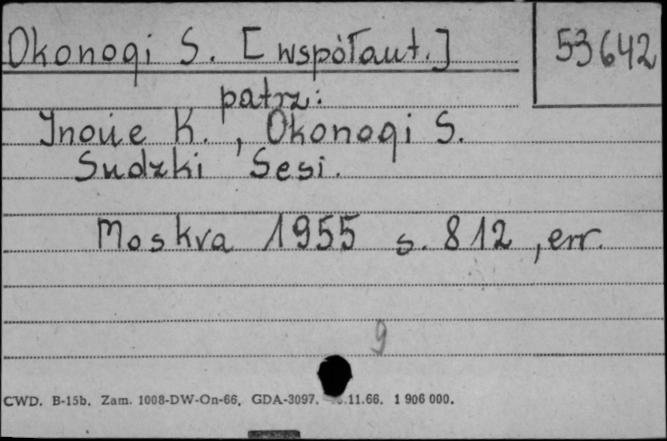 Okonogi S. [współaut.] 53642
patrz:
Inoue K., Okonogi S.
Sudzki Sesi.
Moskva 1955 s. 812, err.
9
CWD. B-15b. Zam. 1008-DW-On-66. GDA-3097. .11.66. 1 906 000.